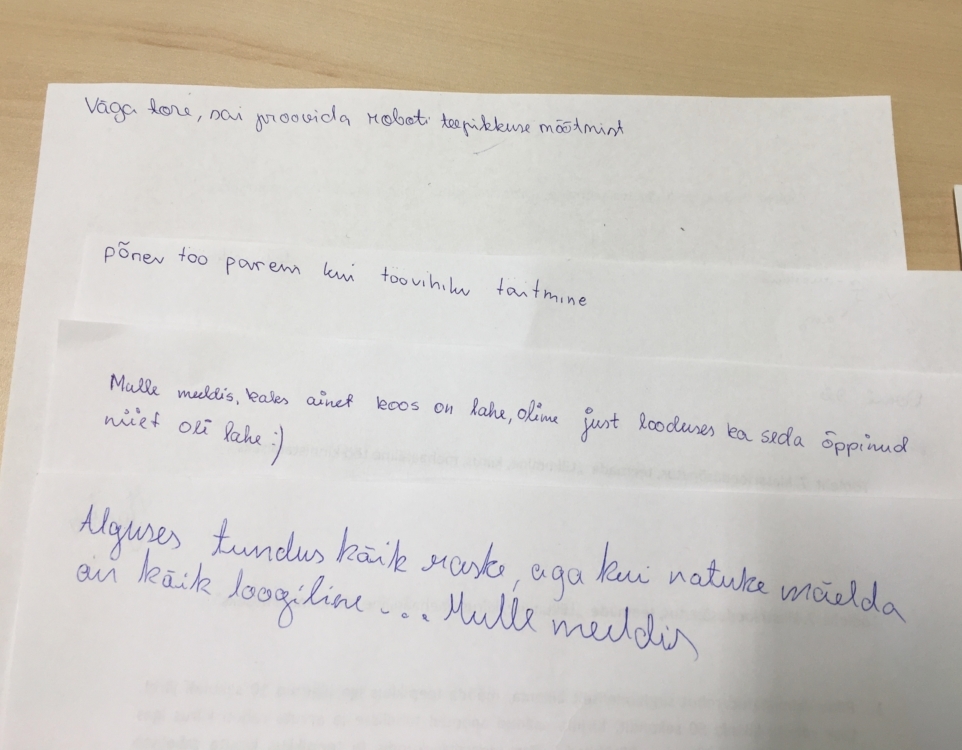 Väga tore, sai proovida roboti teepikkuse mõõtmist
põnev töö parem kui töövihiku täitmine
Mulle meeldis, kaks ainet koos on lahe, olime just looduses ka seda õppinud
niiet oli lahe :)
Alguses tundus kõik raske, aga kui natuke mõelda
on kõik loogiline... Mulle meeldis